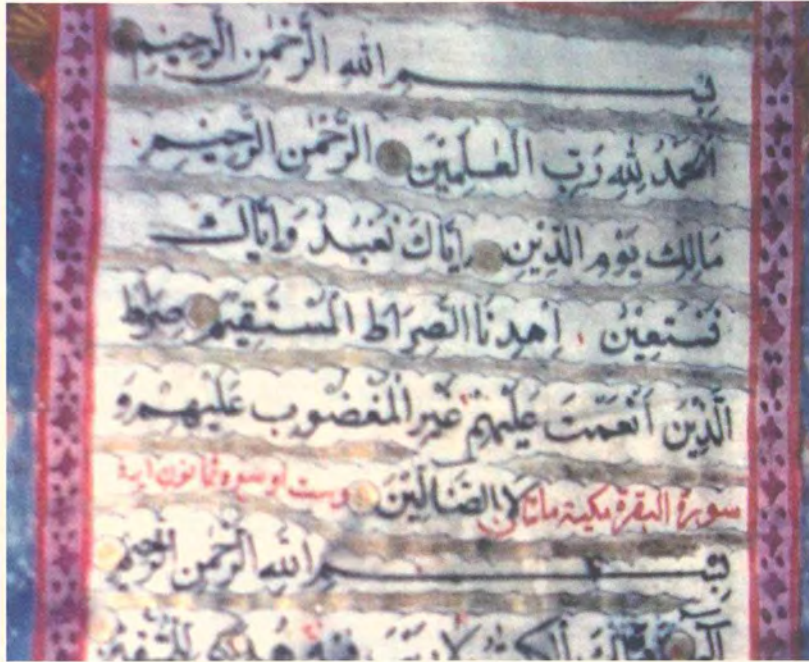 بِسْمِ اللهِ الرَّحْمٰنِ الرَّحِيْمِ
اَلْحَمْدُ لِلّٰهِ رَبِّ الْعٰلَمِيْنَ الرَّحْمٰنِ الرَّحِيْمِ
مَالِكِ يَوْمِ الدِّيْنِ اِيَّاكَ نَعْبُدُ وَاِيَّاكَ
نَسْتَعِيْنُ اِهْدِنَا الصِّرَاطَ الْمُسْتَقِيْمَ صِرَاطَ
الَّذِيْنَ اَنْعَمْتَ عَلَيْهِمْ غَيْرِ الْمَغْضُوْبِ عَلَيْهِمْ وَ
لَا الضَّالِّيْنَ
سورة البقرة مكية مائتان وست ثمانون اية
بِسْمِ اللهِ الرَّحْمٰنِ الرَّحِيْمِ
لا ريب فيه هدى للمتقين